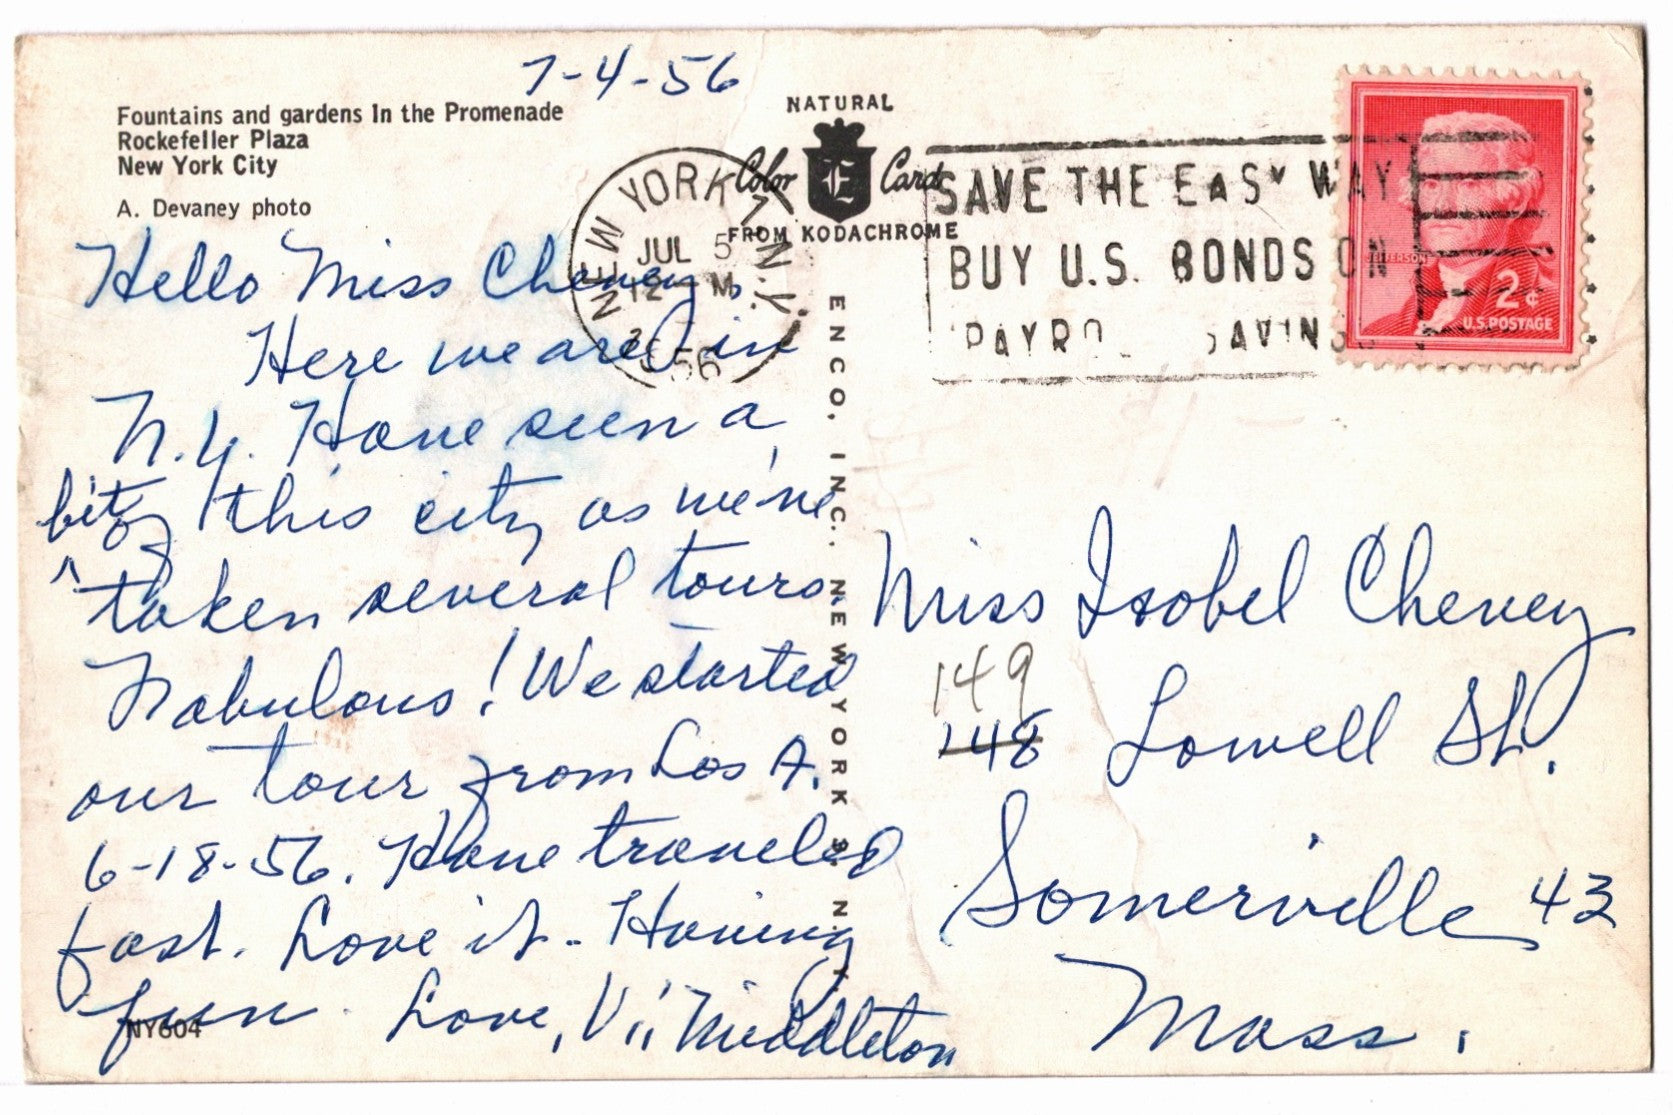 7-4-56
Fountains and gardens In the Promenade
Rockefeller Plaza
New York City
A. Devaney photo
NATURAL
Color E Card
FROM KODACHROME
NEW YORK, N.Y.
JUL 5
12 M
56
SAVE THE EASY WAY
BUY U.S. BONDS ON
PAYROLL SAVINGS
JEFFERSON
2¢
U.S. POSTAGE
Hello Miss Cheney,
Here we are in
N.Y. Have seen a
bit of this city as we've
taken several tours.
Fabulous! We started
our tour from Los A.
6-18-56. Have traveled
fast. Love it - Having
fun. Love, Vi Middleton
NY604
ENCO, INC. NEW YORK N.Y.
Miss Isobel Cheney
149
148 Lowell St.
Somerville 43
Mass.